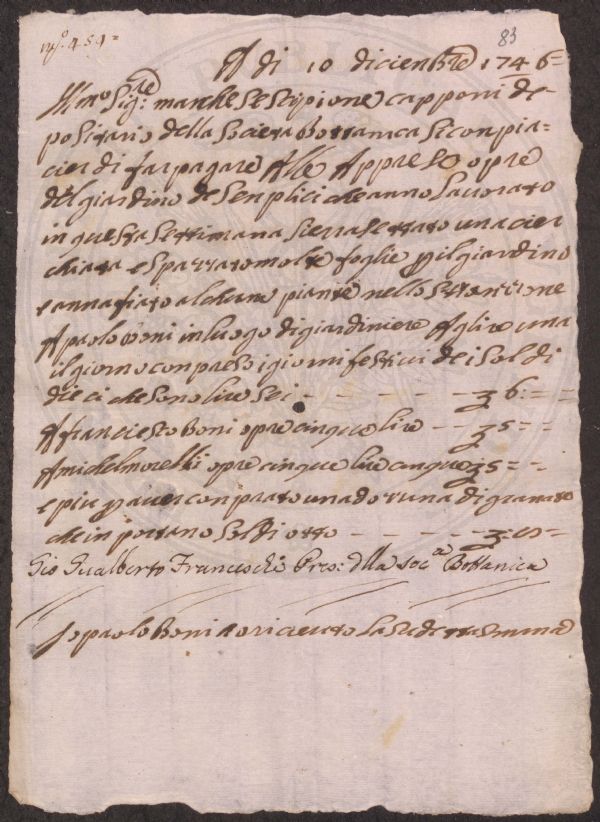 nº: 454=
83
A di 10 dicienbre 1746=
Illmo Sig:re marchese scipione capponi de=
positario della societa Bottanica si conpia=
cier di far pagare Alle Appreso opre
del giardino de senplici che anno lavorato
in questa settimana si era serrato una
chiata e spazzato molte foglie p il giardino
e annafiato alchune piante nello stanzone
A paolo Boni in luogo di giardiniere A lire una
il giorno conpreso i giorni festivi dei soldi
dieci che sono lire sei - - - - - 6: = =
A franciesco Boni opre cinque lire - - 5 = =
A michel morelli opre cinque lire cinque 5 = =
e piu p aver conprato una dozzina di granate
che inportano soldi otto - - - - -
Gio Gualberto Franceschi Pro: dlla Soc:a Bottanica
Io paolo Boni o riceuto la sudetta somma